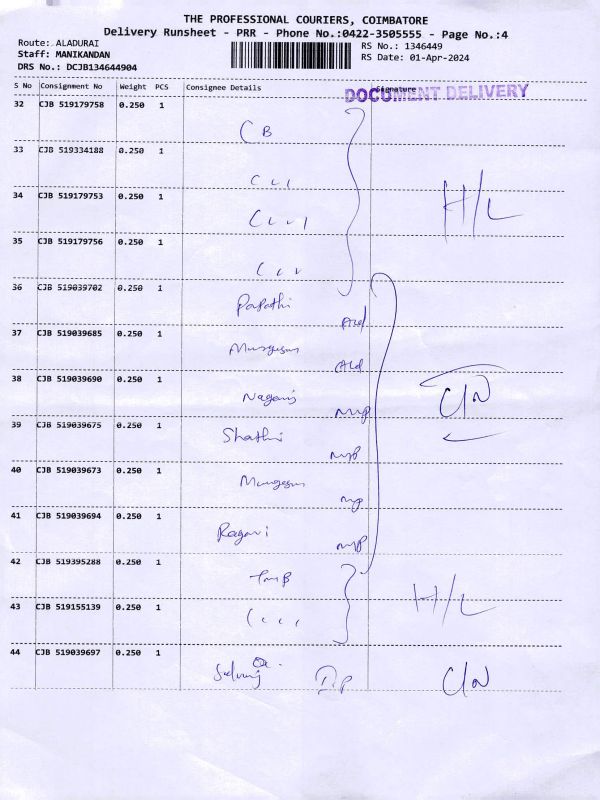 THE PROFESSIONAL COURIERS, COIMBATORE
Delivery Runsheet - PRR - Phone No.:0422-3505555 - Page No.:4
Route: ALADURAI
Staff: MANIKANDAN
DRS No.: DCJB134644904
RS No.: 1346449
RS Date: 01-Apr-2024
S No Consignment No Weight PCS Consignee Details Signature
DOCUMENT DELIVERY
32 CJB 519179758 0.250 1
CB
33 CJB 519334188 0.250 1
34 CJB 519179753 0.250 1
H/L
35 CJB 519179756 0.250 1
36 CJB 519039702 0.250 1
Papathi Ald
37 CJB 519039685 0.250 1
Murugesan Ald
38 CJB 519039690 0.250 1
Nagaraj C/N
39 CJB 519039675 0.250 1
Shathi
40 CJB 519039673 0.250 1
Murugesan
41 CJB 519039694 0.250 1
Ragavi
42 CJB 519395288 0.250 1
TMB H/L
43 CJB 519155139 0.250 1
44 CJB 519039697 0.250 1
Selvaraj C/N